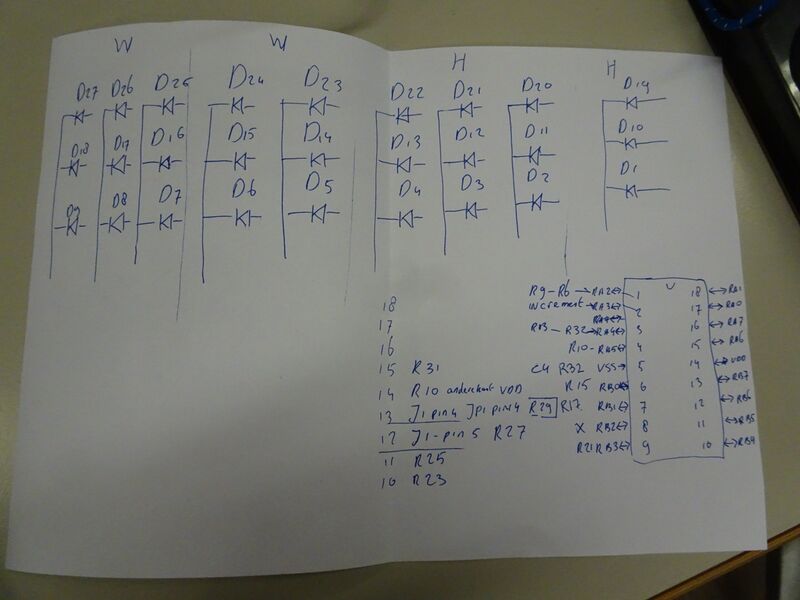 W W H H
D27 D26 D25 D24 D23 D22 D21 D20 D19
D18 D17 D16 D15 D14 D13 D12 D11 D10
D9 D8 D7 D6 D5 D4 D3 D2 D1
R9-R6 → RA2 ↔ 1 U 18 ↔ RA1
increment → RA3 ↔ 2 17 ↔ RA0
R32 → RA4 ↔ 3 16 ↔ RA7
R10 - RA5 ↔ 4 15 ↔ RA6
C4 R32 VSS → 5 14 ↔ VDD
R15 RB0 ↔ 6 13 ↔ RB7
R17 RB1 ↔ 7 12 ↔ RB6
X RB2 ↔ 8 11 ↔ RB5
R21 RB3 ↔ 9 10 ↔ RB4
18
17
16
15 R31
14 R10 anderekant VDD
13 J1 pin4 JP1 pin4 R29
12 J1-pin5 R27
11 R25
10 R23